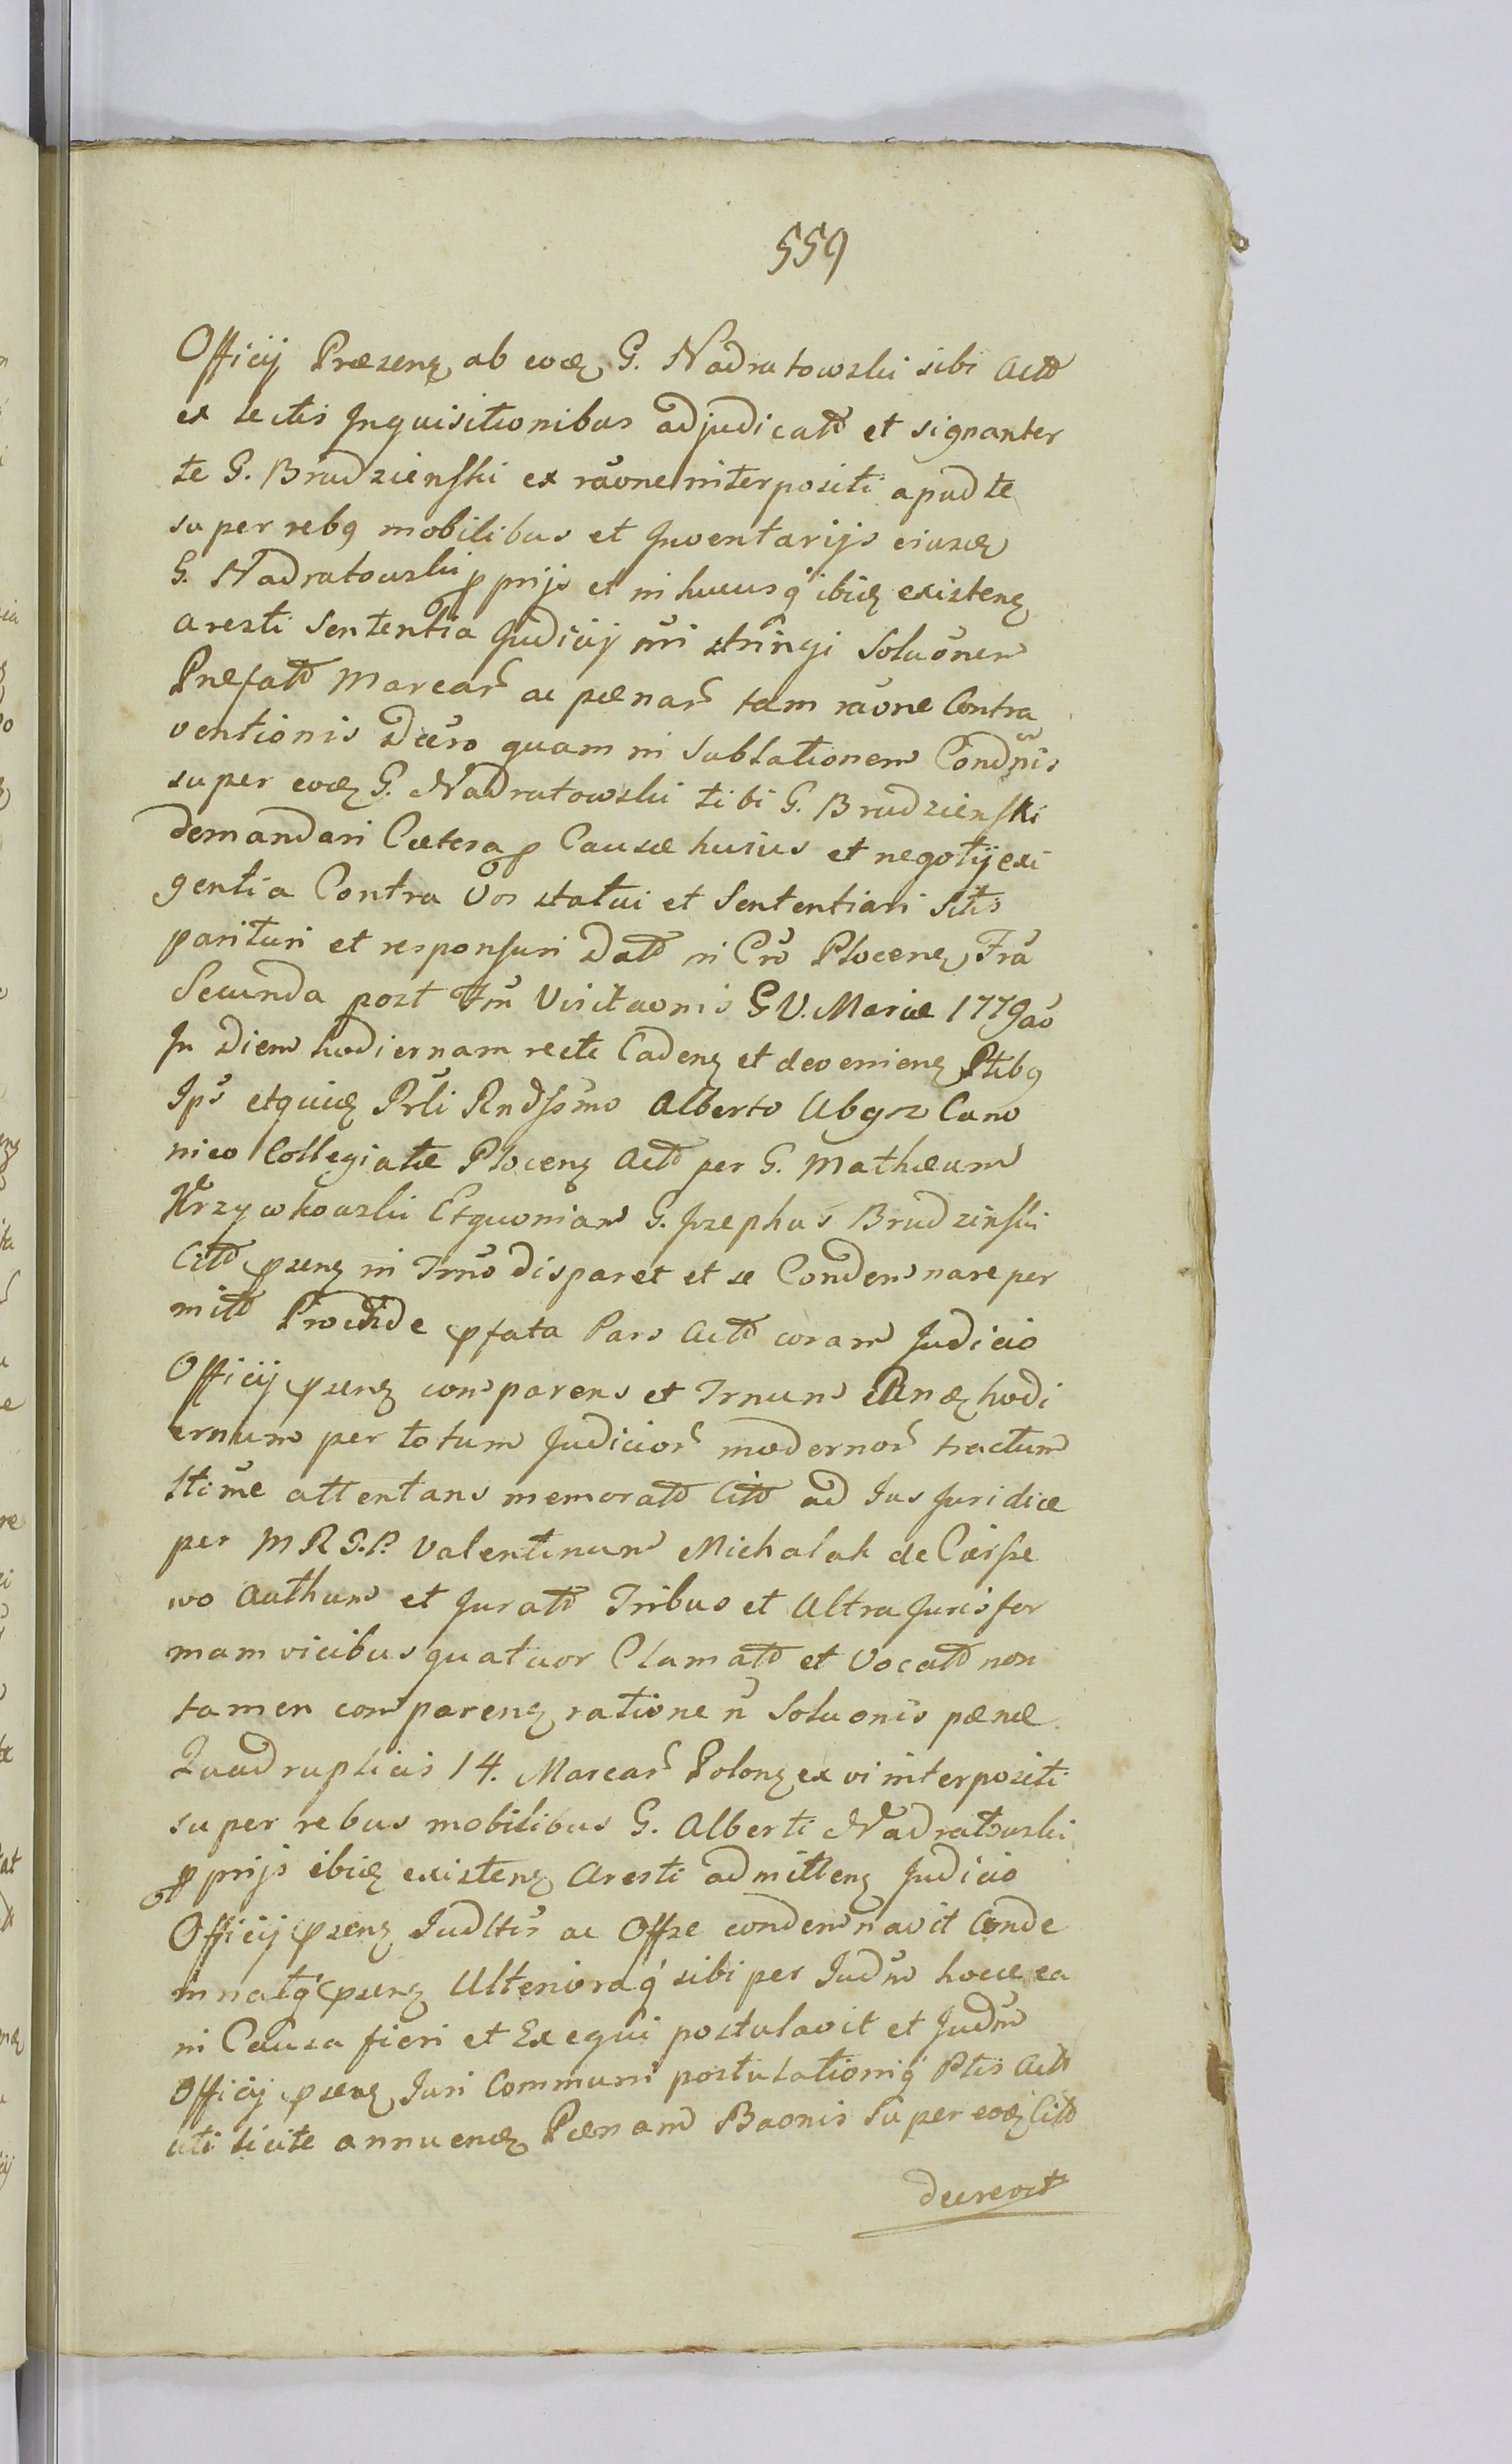 559
Officij Præsenz ab eodz G. Nadratowski sibi Actō
ex lectis Inquisitionibus adjudicatō et signanter
te G. Brudzienski ex raōne interpositi apud te
super rebq mobilibus et Inventarijs eiusdz
G. Nadratowski pprijs et in hucusq ibidz existenz
aresti Sententia Judicij nri stringi Soluōnem
Præfatō Marcar ac pænar tam raōne Contra
ventionis Decro quam in sublationem Condnnis
super eodz G. Nadratowski tibi G. Brudzienski
demandari Cætera p Causæ huius et negotij exi
gentia Contra Vos statui et Sententiari Sitis
parituri et responsuri Datō in Crō Plocenz Fra
Secunda post Ftm Visitaōnis B V. Mariæ 1779 aō
In Diem hodiernam recte Cadenz et devenienz Ptibq
Ips etquidz Prli Rndssmo Alberto Cano
nico Collegiatæ Plocenz Actō per G. Mathæum
Krzywkowski Etquoniam G. Josephus Brudzinski
Citō psenz in Trno disparet et se Condemnare per
mitō Proinde pfata Pars Actō coram Judicio
Officij psenz comparens et Trnum hodi
ernum per totum Judicior modernor tractum
Ltime attentans memoratō Citō ad Jus Juridice
per M R G. P. Valentinum Michalak de
wo Authum et Juratō Tribus et Ultra Juris for
mam vicibus quatuor Clamatō et Vocatō non
tamen comparenz ratione n Soluonis pænæ
Quadruplicis 14. Marcar Polonz ex vi interpositi
super rebus mobilibus G. Alberti Nadratowski
pprijs ibidz existenz Aresti admittenz Judicio
Officij psenz Judltr ac Offse condemnavit Conde
mnatq psenz Ulterioraq sibi per Judm hocce ea
in Causa fieri et Exequi postulavit et Judm
Officij psenz Juri Communi postulationiq Ptis Actō
uti licite annuendz Pænam Baonis Super eodz Citō
decrevit